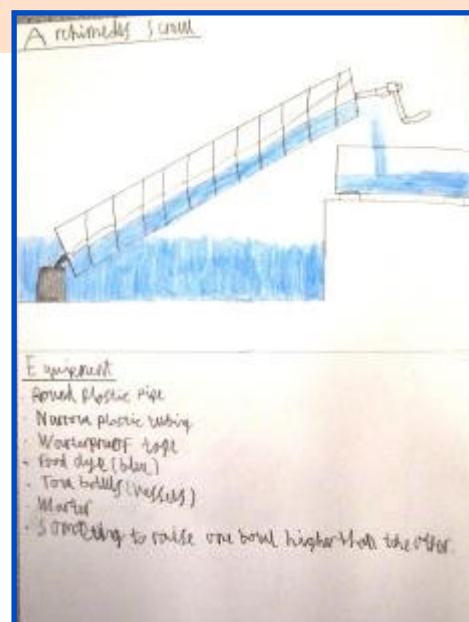 Archimedes Screw
Equipment
Round Plastic Pipe
Narrow plastic tubing
Waterproof tape
Food dye (blue)
(vessels)
Warter
Something to raise one bowl higher than the other.